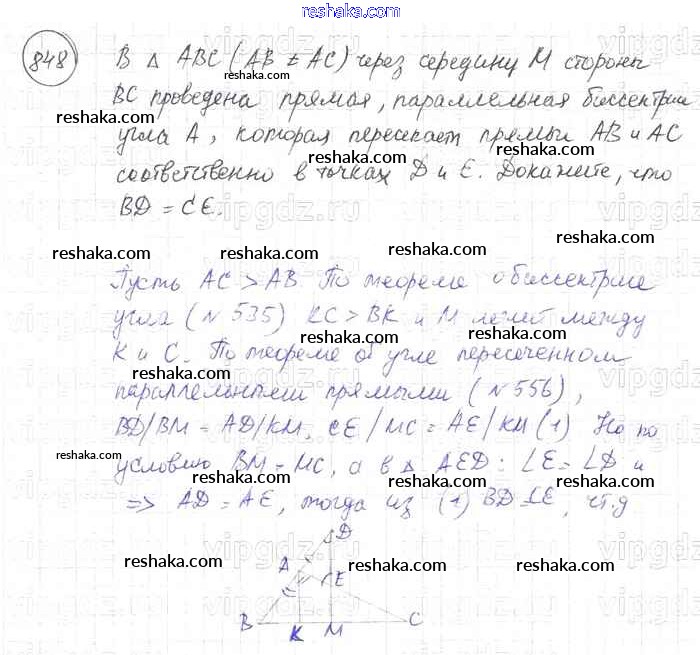 reshaka.com
848 В △ ABC (AB ≠ AC) через середину M стороны
reshaka.com reshaka.com
BC проведена прямая, параллельная биссектрисе
reshaka.com
угла A, которая пересекает прямые AB и AC
reshaka.com reshaka.com
соответственно в точках D и E. Докажите, что
reshaka.com
BD = CE.
reshaka.com reshaka.com
Пусть AC > AB По теореме о биссектрисе
reshaka.com
угла (№ 535) KC > BK и M лежит между
reshaka.com reshaka.com
K и C. По теореме об угле пересеченном
reshaka.com
параллельными прямыми (№ 556),
reshaka.com
BD/BM = AD/KM, CE/MC = AE/KM (1) Но по
reshaka.com reshaka.com
условию BM = MC, а в △ AED: ∠E = ∠D и
reshaka.com
=> AD = AE, тогда из (1) BD = CE, чт.д
reshaka.com reshaka.com
D
A E
reshaka.com
B K M C
reshaka.com reshaka.com
vipgdz.ru